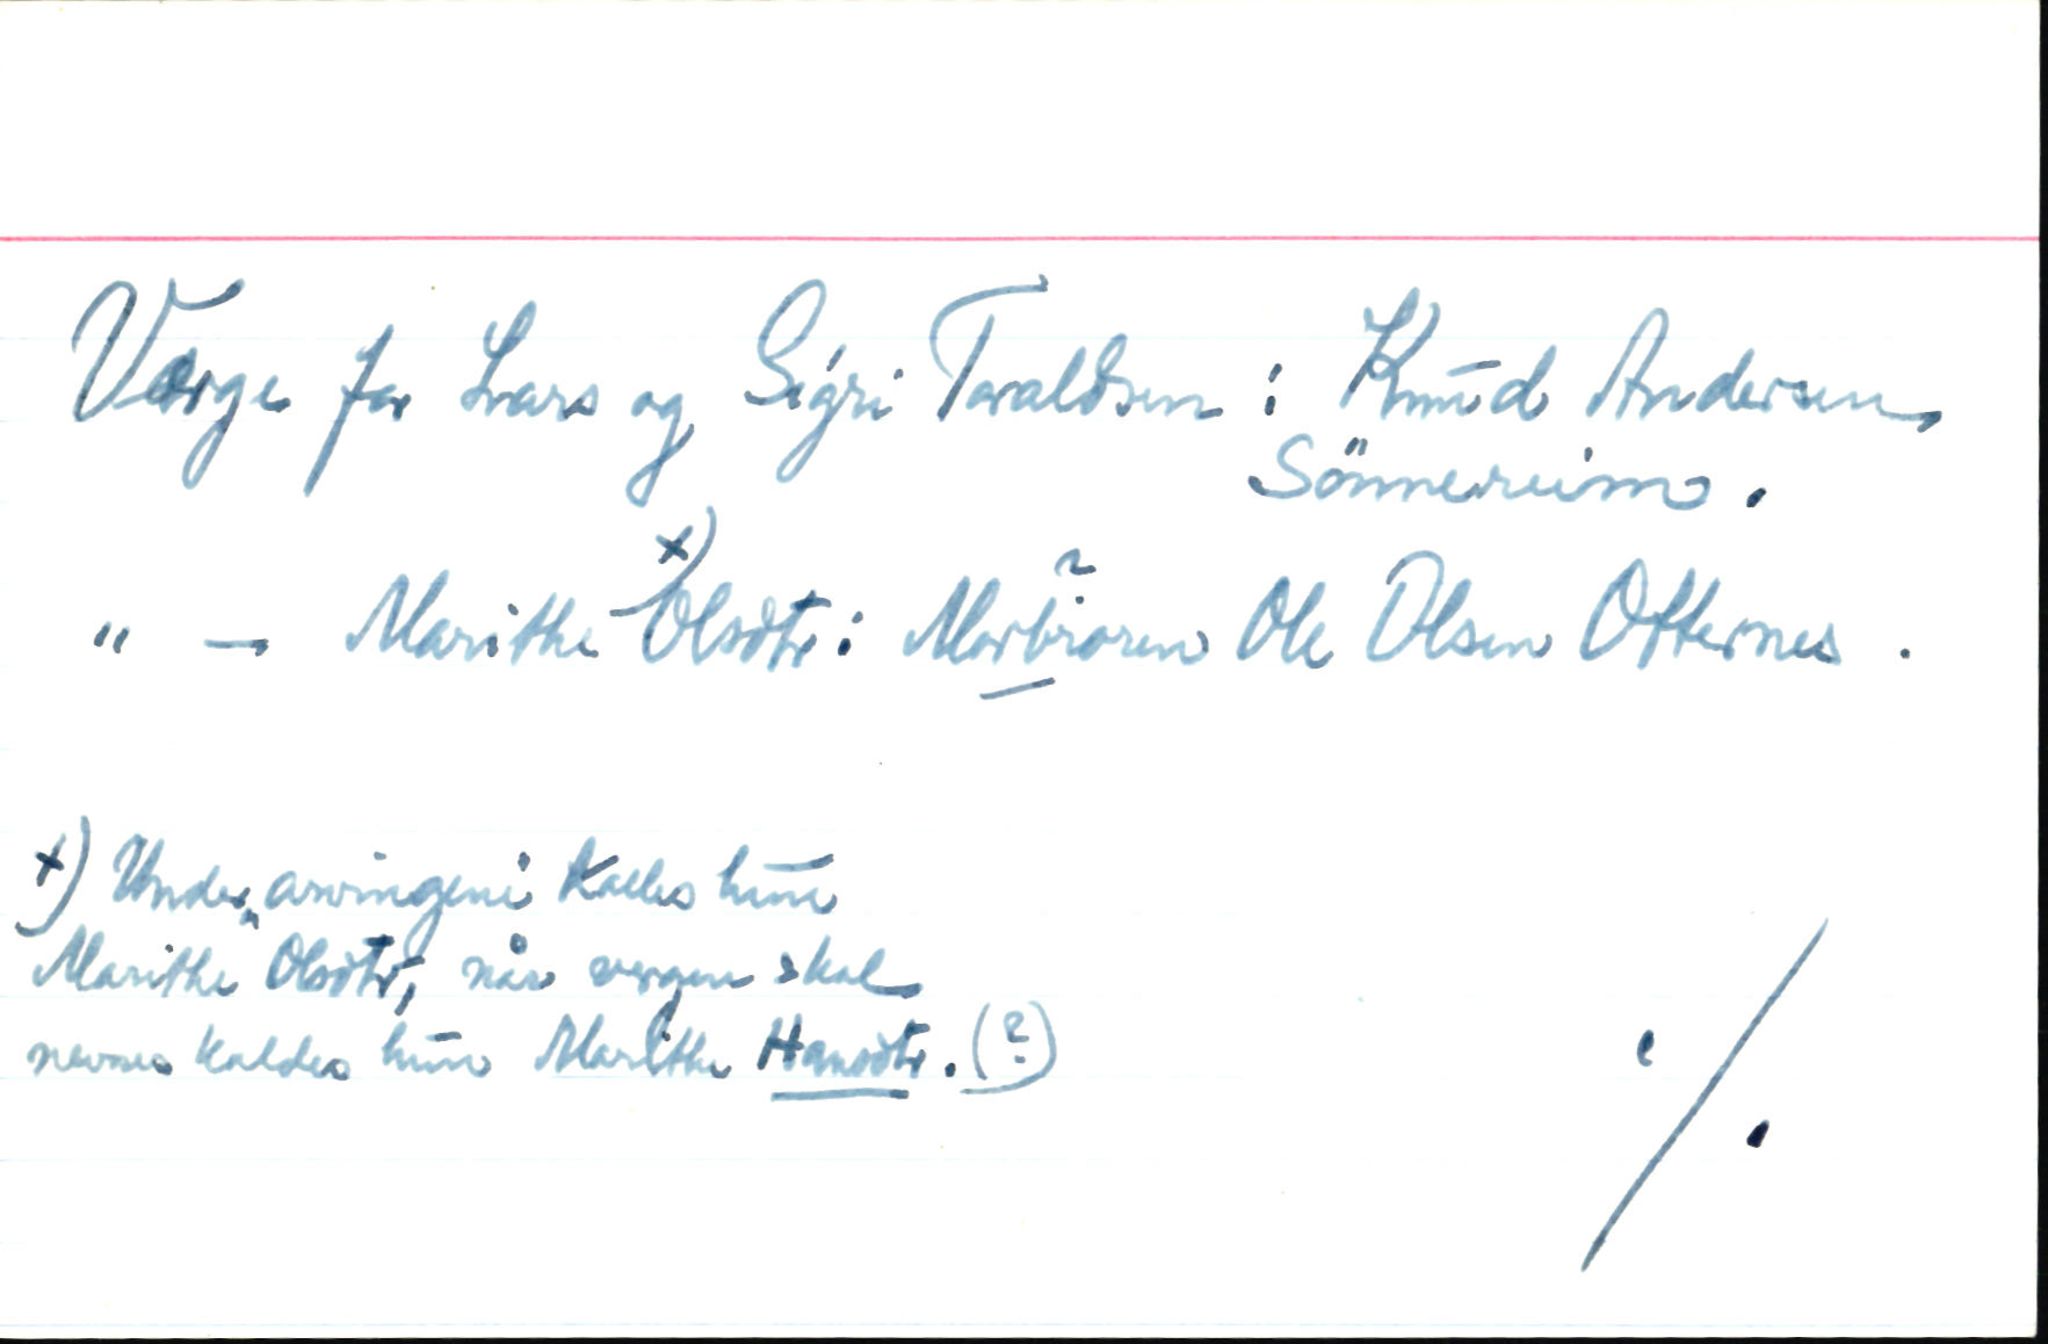 Værge for Lars og Sigri Taraldsen : Knud Andersen
Sönnereim .
" — Marithe x) Olsdtr : Morbroren ? Ole Olsen Otternes .
x) Under "arvingene" kalles hun
Marithe Olsdtr, når vergen skal
nevnes kaldes hun Marithe Hansdtr. (?)
./.